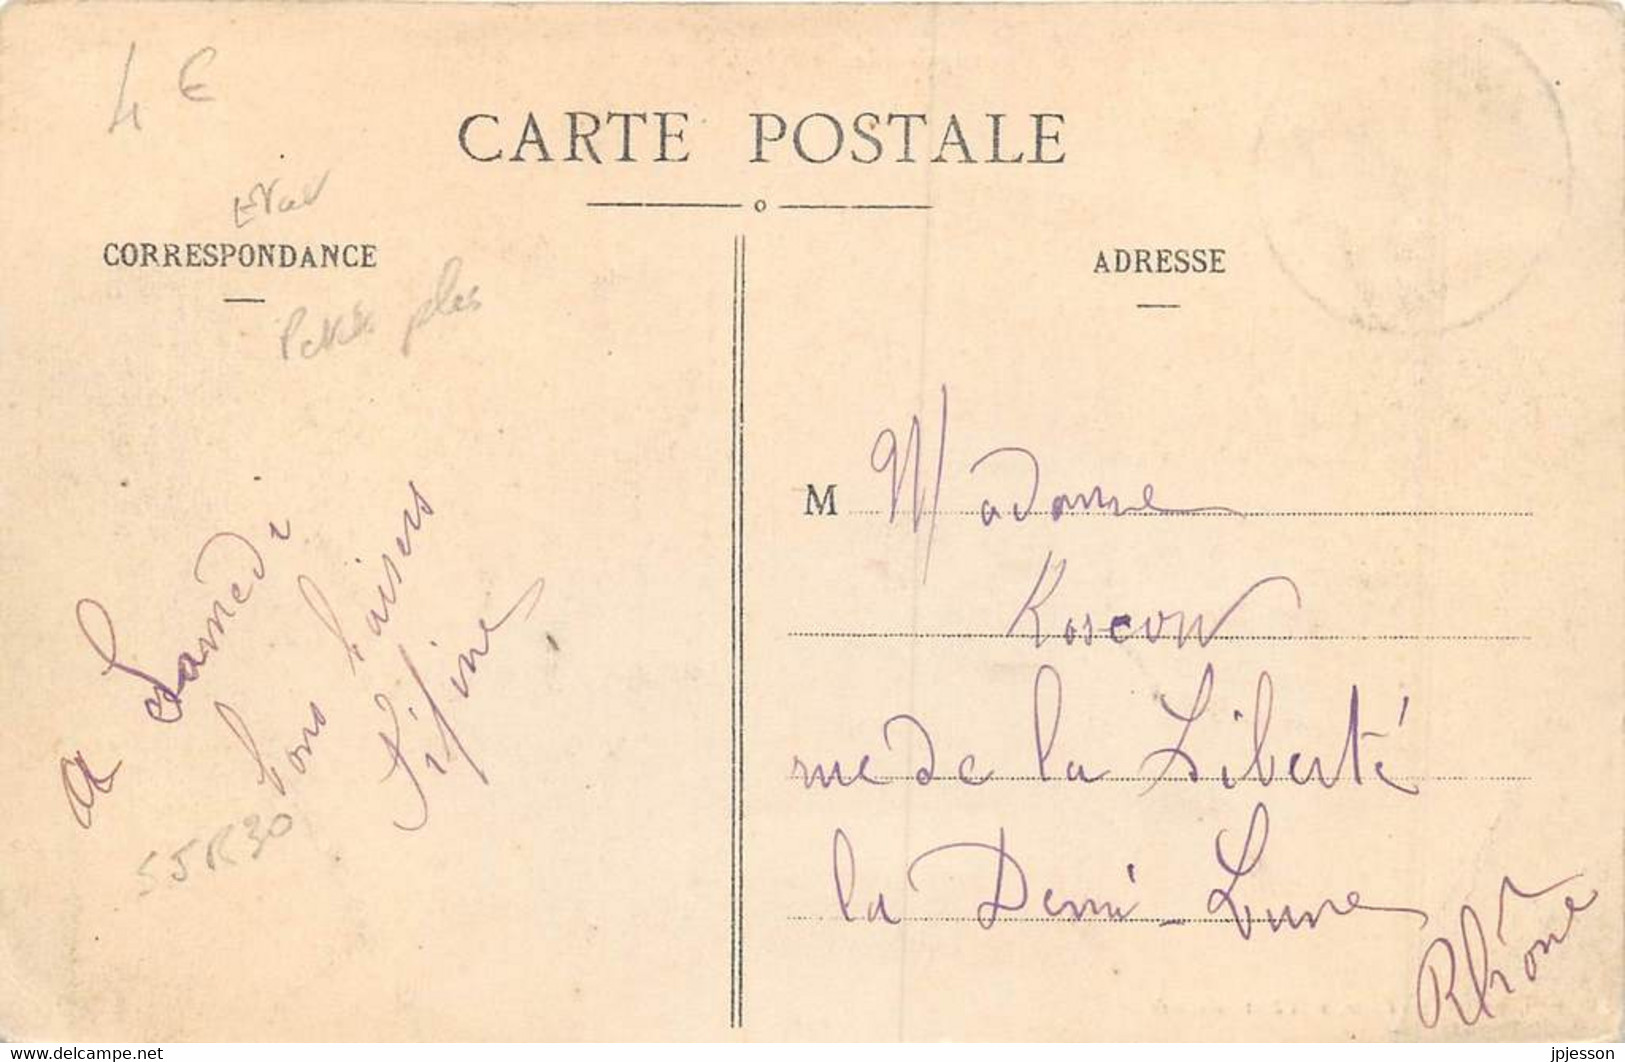 4 €
CARTE POSTALE
CORRESPONDANCE
ADRESSE
a Samedi
bons baisers
Fifine
55R30
M Madame
rue de la Liberté
la Demi-Lune
Rhône
www.delcampe.net
jpjesson